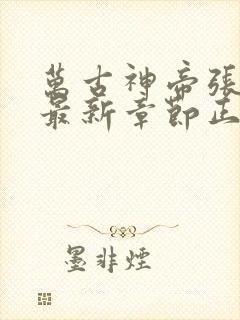 萬古神帝張
最新章節正
墨非煙